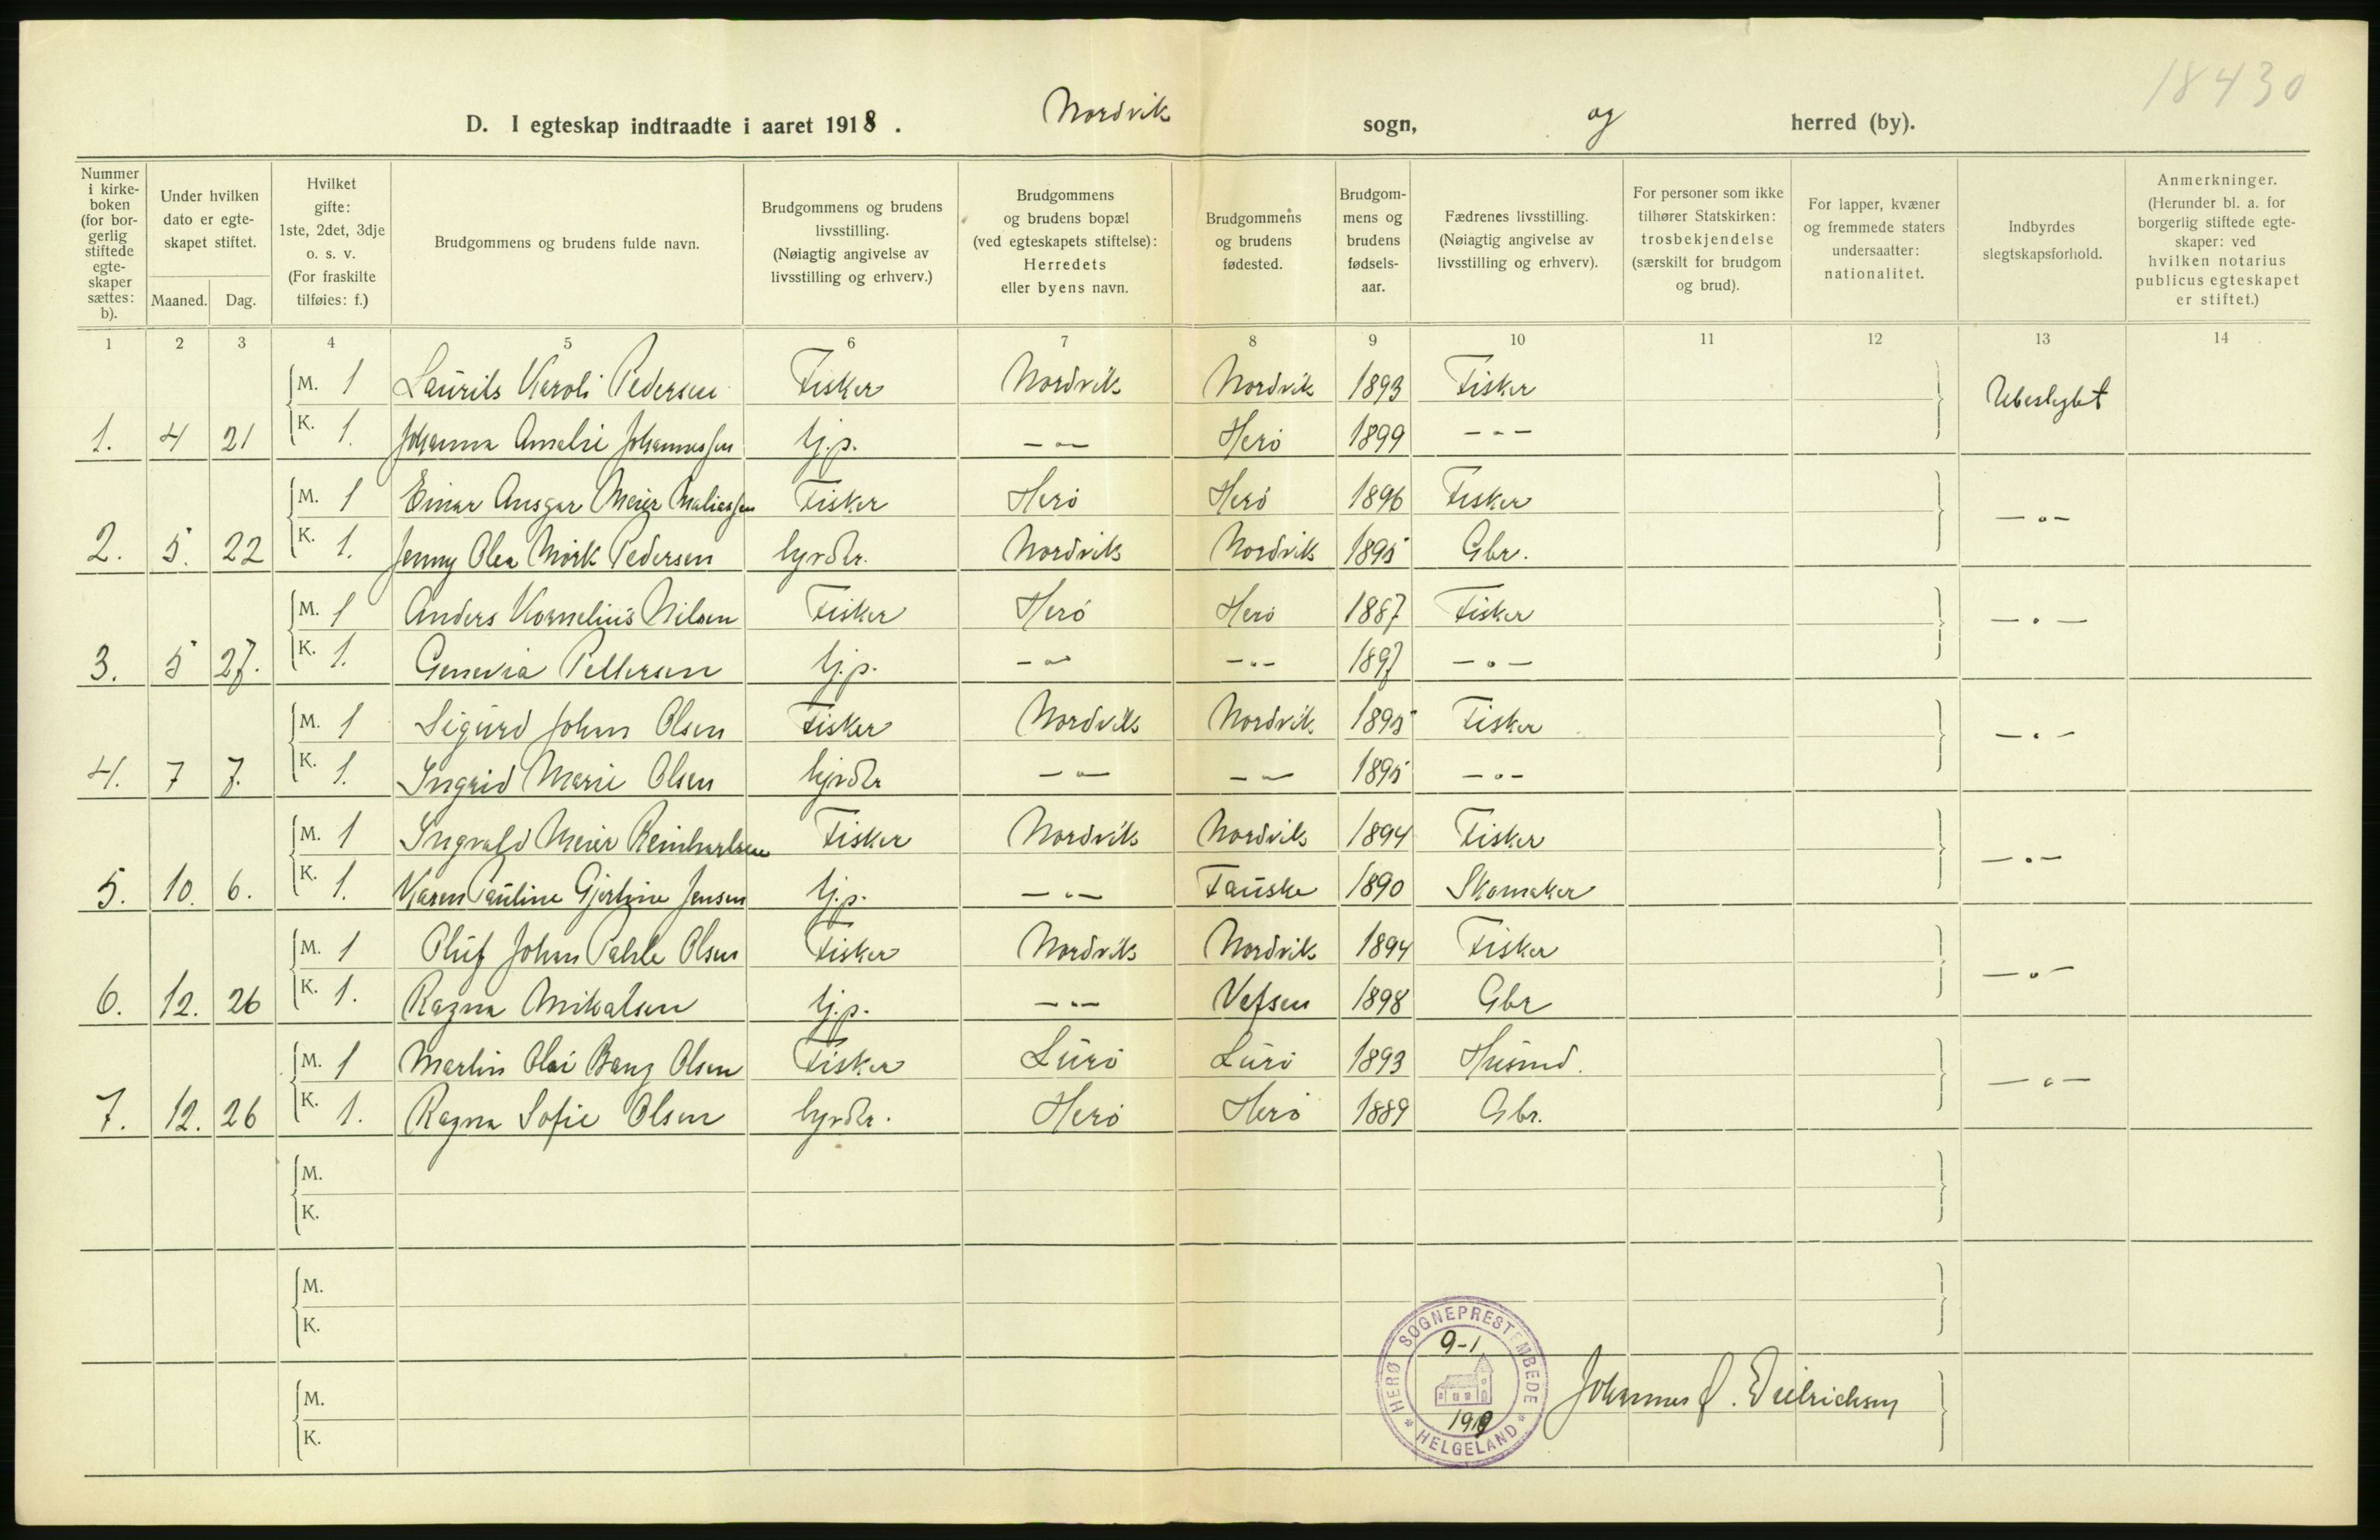 18430
D. I egteskap indtraadte i aaret 1918. Nordvik sogn, og herred (by).
Nummer i kirkeboken (for borgerlig stiftede egteskaper sættes: b).
Under hvilken dato er egteskapet stiftet.
Maaned. Dag.
Hvilket gifte: 1ste, 2det, 3dje o. s. v. (For fraskilte tilføies: f.)
Brudgommens og brudens fulde navn.
Brudgommens og brudens livsstilling. (Nøiagtig angivelse av livsstilling og erhverv.)
Brudgommens og brudens bopæl (ved egteskapets stiftelse): Herredets eller byens navn.
Brudgommens og brudens fødested.
Brudgommens og brudens fødselsaar.
Fædrenes livsstilling. (Nøiagtig angivelse av livsstilling og erhverv).
For personer som ikke tilhører Statskirken: trosbekjendelse (særskilt for brudgom og brud).
For lapper, kvæner og fremmede staters undersaatter: nationalitet.
Indbyrdes slegtskapsforhold.
Anmerkninger. (Herunder bl. a. for borgerlig stiftede egteskaper: ved hvilken notarius publicus egteskapet er stiftet.)
1 2 3 4 5 6 7 8 9 10 11 12 13 14
M. 1 Laurits Karoli Pedersen Fisker Nordvik Nordvik 1893 Fisker Ubeslegtet
1. 4 21 K. 1. Johanna Amalie Johannessen tj.p. -"- Herö 1899 -"-
M. 1 Einar Ansgar Meier Maliassen Fisker Herö Herö 1896 Fisker -"-
2. 5. 22 K. 1. Jenny Olea Mörk Pedersen hjvdtr. Nordvik Nordvik 1895 Gbr.
M. 1 Anders Kornelius Nilsen Fisker Herö Herö 1887 Fisker -"-
3. 5 27. K. 1. Genevia Pettersen tj.p. -"- -"- 1897 -"-
M. 1 Sigurd Johan Olsen Fisker Nordvik Nordvik 1895 Fisker -"-
4. 7 7. K. 1. Ingrid Marie Olsen hjvdtr -"- -"- 1895 -"-
M. 1 Ingvald Meier Reinhartsen Fisker Nordvik Nordvik 1894 Fisker -"-
5. 10. 6. K. 1. Karen Pauline Gjertine Jensen tj.p. -"- Fauske 1890 Skomaker
M. 1 Oluf Johan Olsen Fisker Nordvik Nordvik 1894 Fisker -"-
6. 12. 26 K. 1. Ragna Mikalsen tj.p. -"- Vefsen 1898 Gbr
M. 1 Martin Olai Bang Olsen Fisker Lurö Lurö 1893 Husmd. -"-
7. 12. 26 K. 1. Ragna Sofie Olsen hjvdtr. Herö Herö 1889 Gbr.
M.
K.
M.
K.
M.
K.
HERØ SOGNEPRESTEMBEDE * HELGELAND *
9-1
1919
Johannes Dietrichson